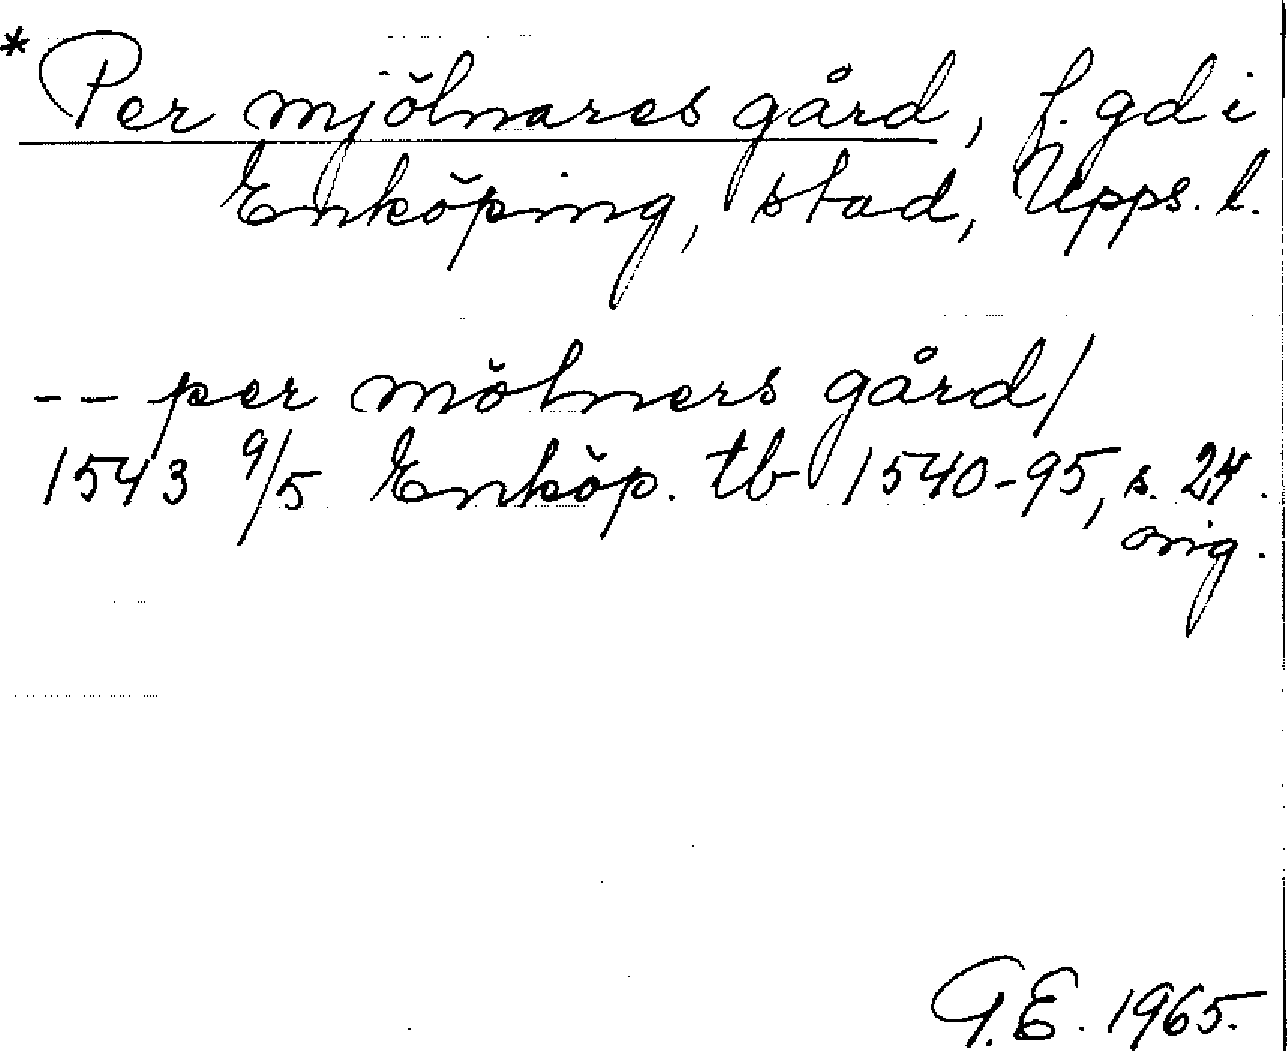 * Per mjölnares gård, f. gd i
Enköping, stad, Upps. l.
-- per mölners gård/
1543 9/5 Enköp. tb 1540-95, s. 24.
orig.
G.E. 1965.